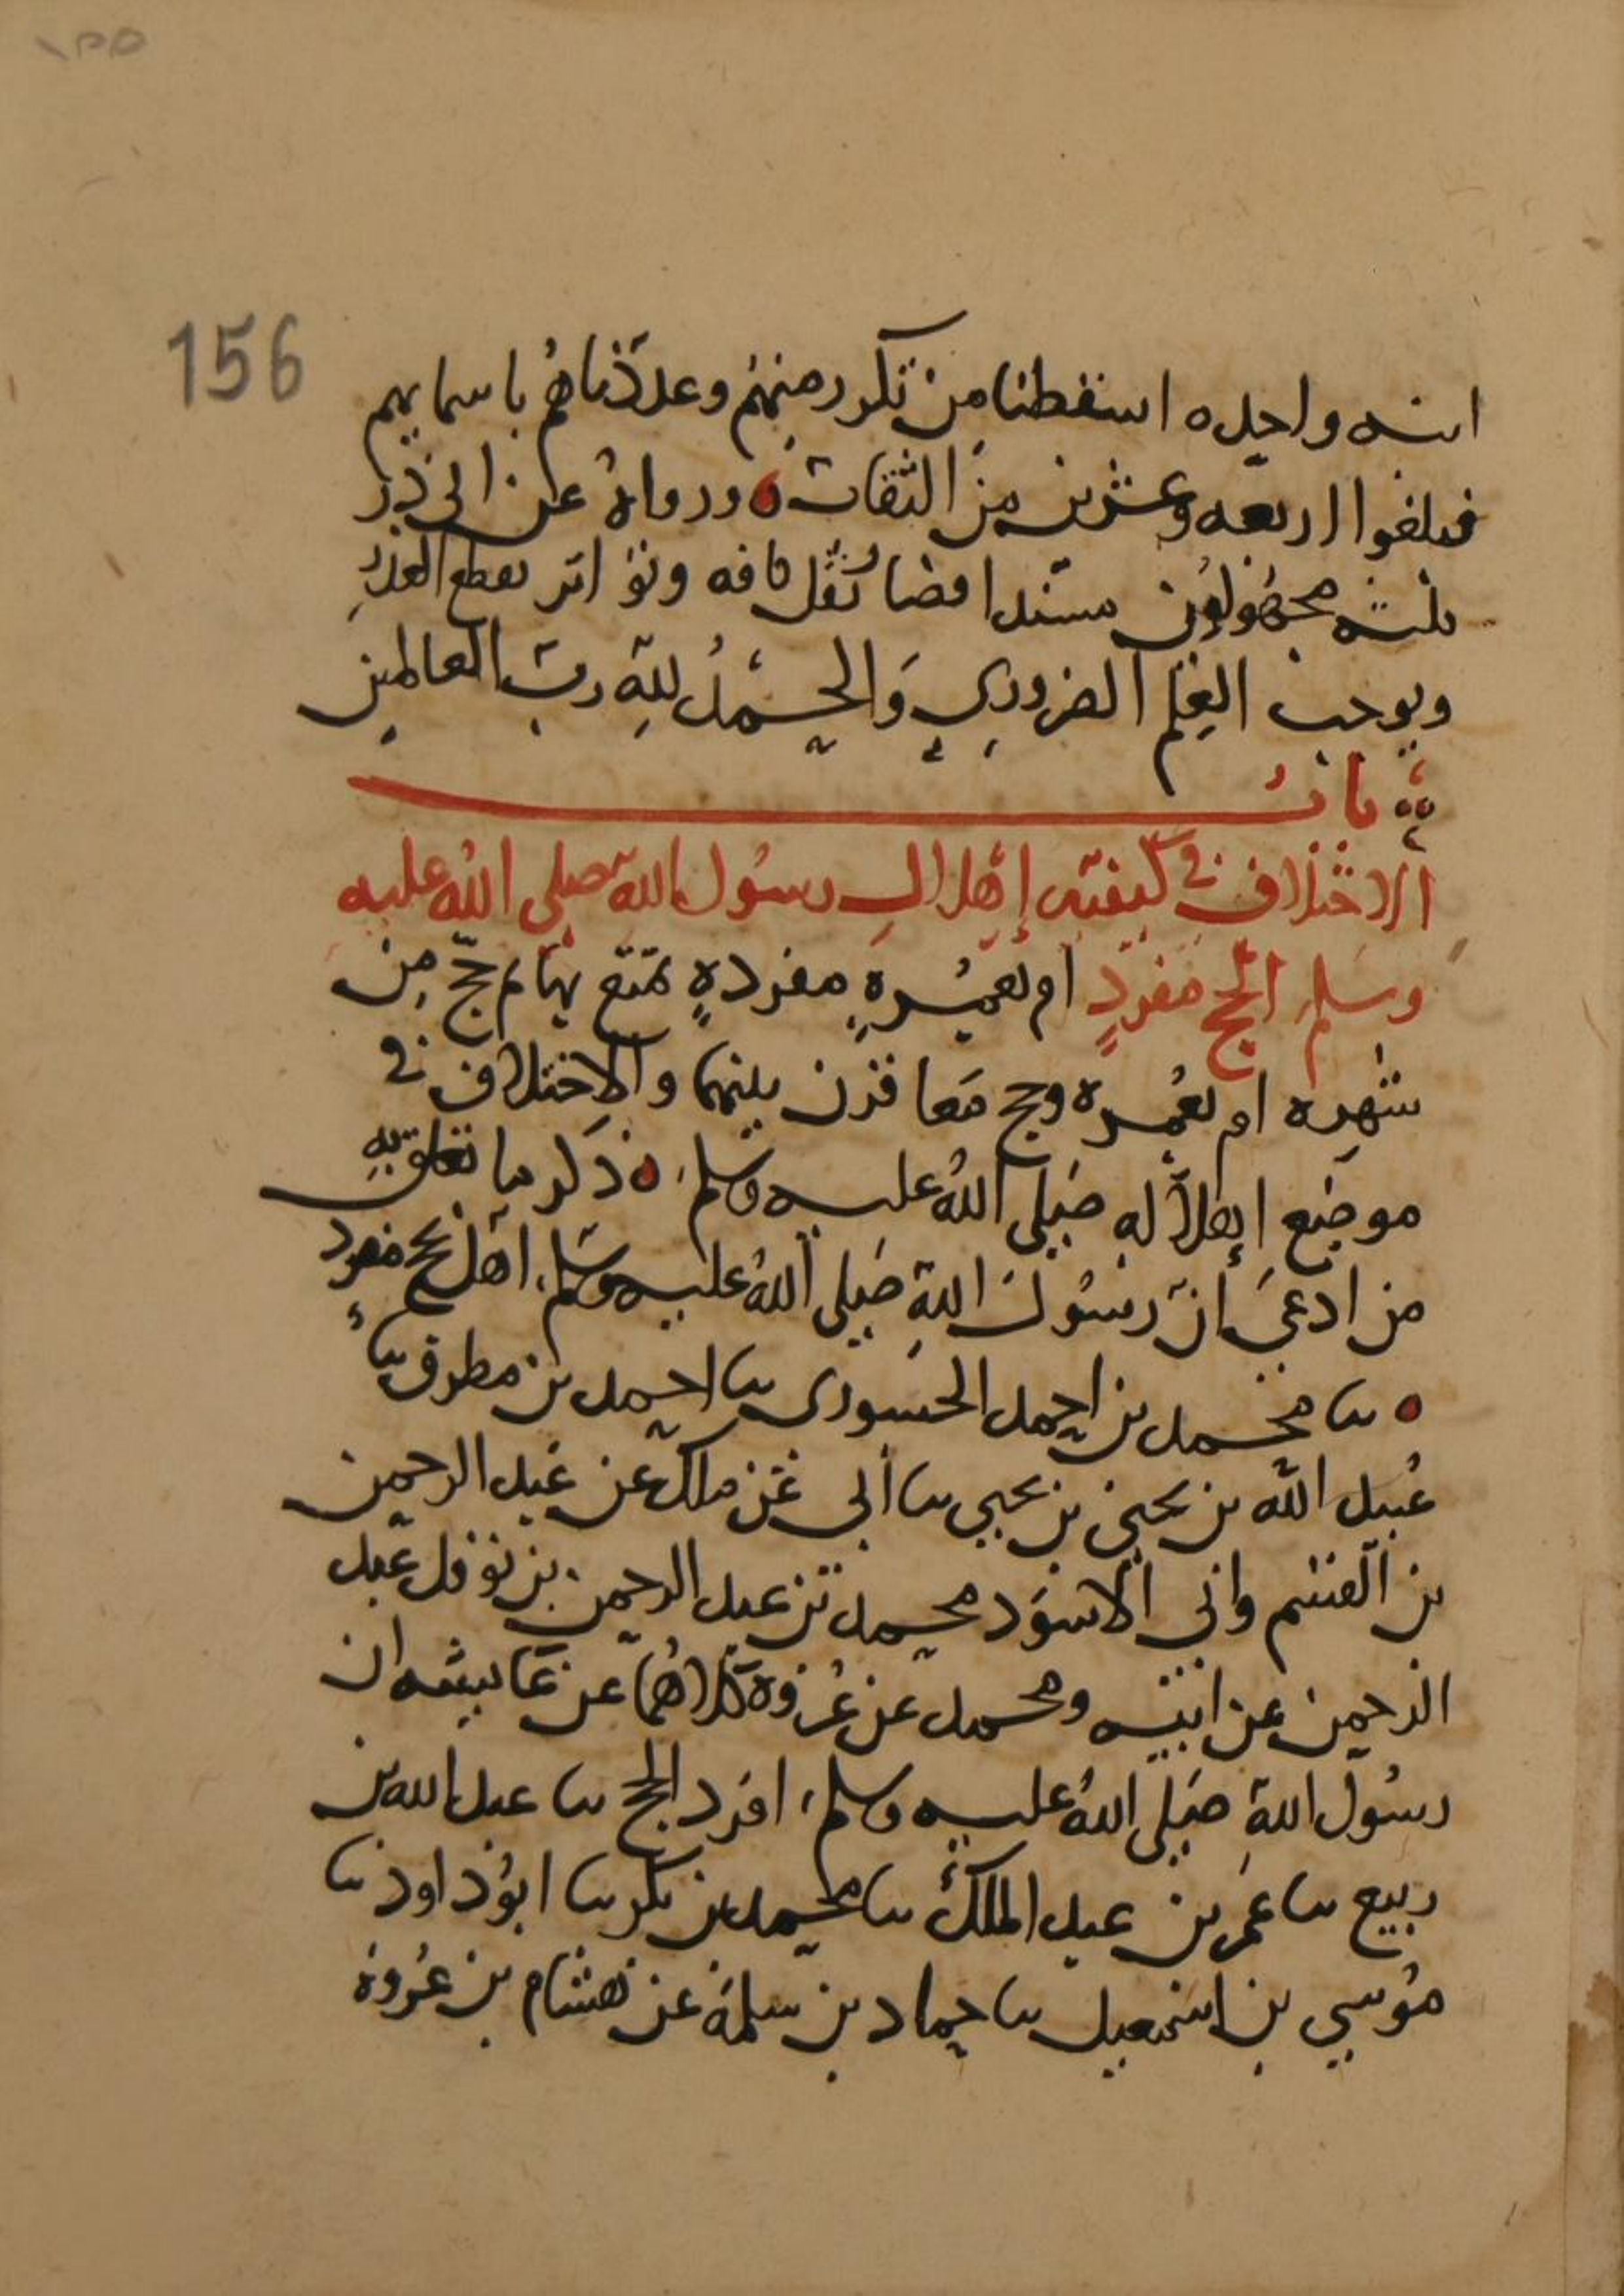 ١٥٥
156
انسه واحده اسقطنا من تكرر منهم وعددناهم باسمايهم
فبلغوا اربعه وعشرين من الثقات ورواه عن ابي ذر
ثلثه مجهولون مسندا فضا نقل كافه وتواتر يقطع العذر
ويوجب العلم الضروري والحمد لله رب العالمين
باب
الاختلاف في كيفيه إهلال رسول الله صلى الله عليه
وسلم الحج مفرد ام بعمرة مفردة تمتع بها ثم حج من
شهره او بعمره وحج معا قرن بينهما والاختلاف في
موضع إهلاله صلى الله عليه وسلم ذكر ما تعلق به
من ادعى أن رسول الله صلى الله عليه وسلم اهل بحج مفرد
ثنا محمد بن احمد الجسوري ثنا احمد بن مطرف ثنا
عبيد الله بن يحيى بن يحيى ثنا أبي عن مالك عن عبد الرحمن
بن القسم وابي الاسود محمد بن عبد الرحمن بن نوفل عبد
الرحمن عن ابيه ومحمد عن عروة كلاهما عن عايشه ان
رسول الله صلى الله عليه وسلم افرد الحج ثنا عبد الله بن
ربيع ثنا عمر بن عبد الملك ثنا محمد بن بكر ثنا ابو داود ثنا
موسى بن اسمعيل ثنا حماد بن سلمة عن هشام بن عروة